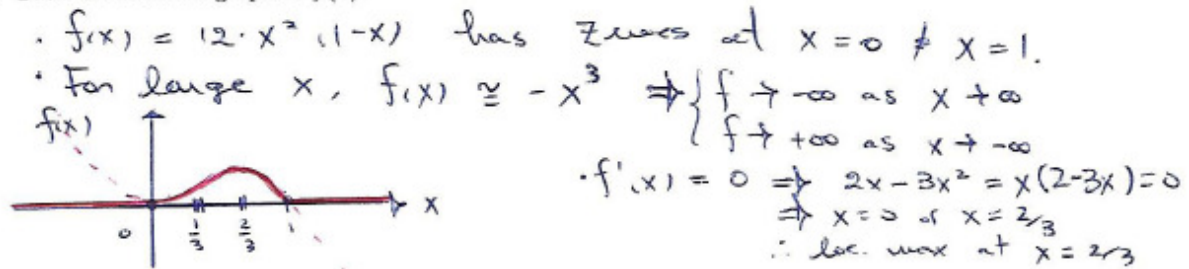 · f(x) = 12·x² (1-x) has zeroes at x=0 & x=1.
· For large x, f(x) ≅ -x³ ⇒ { f → -∞ as x → ∞
f → +∞ as x → -∞
f(x)
· f'(x) = 0 ⇒ 2x - 3x² = x(2-3x) = 0
⇒ x=0 or x=2/3
∴ loc. max at x=2/3
x
0 1/3 2/3 1